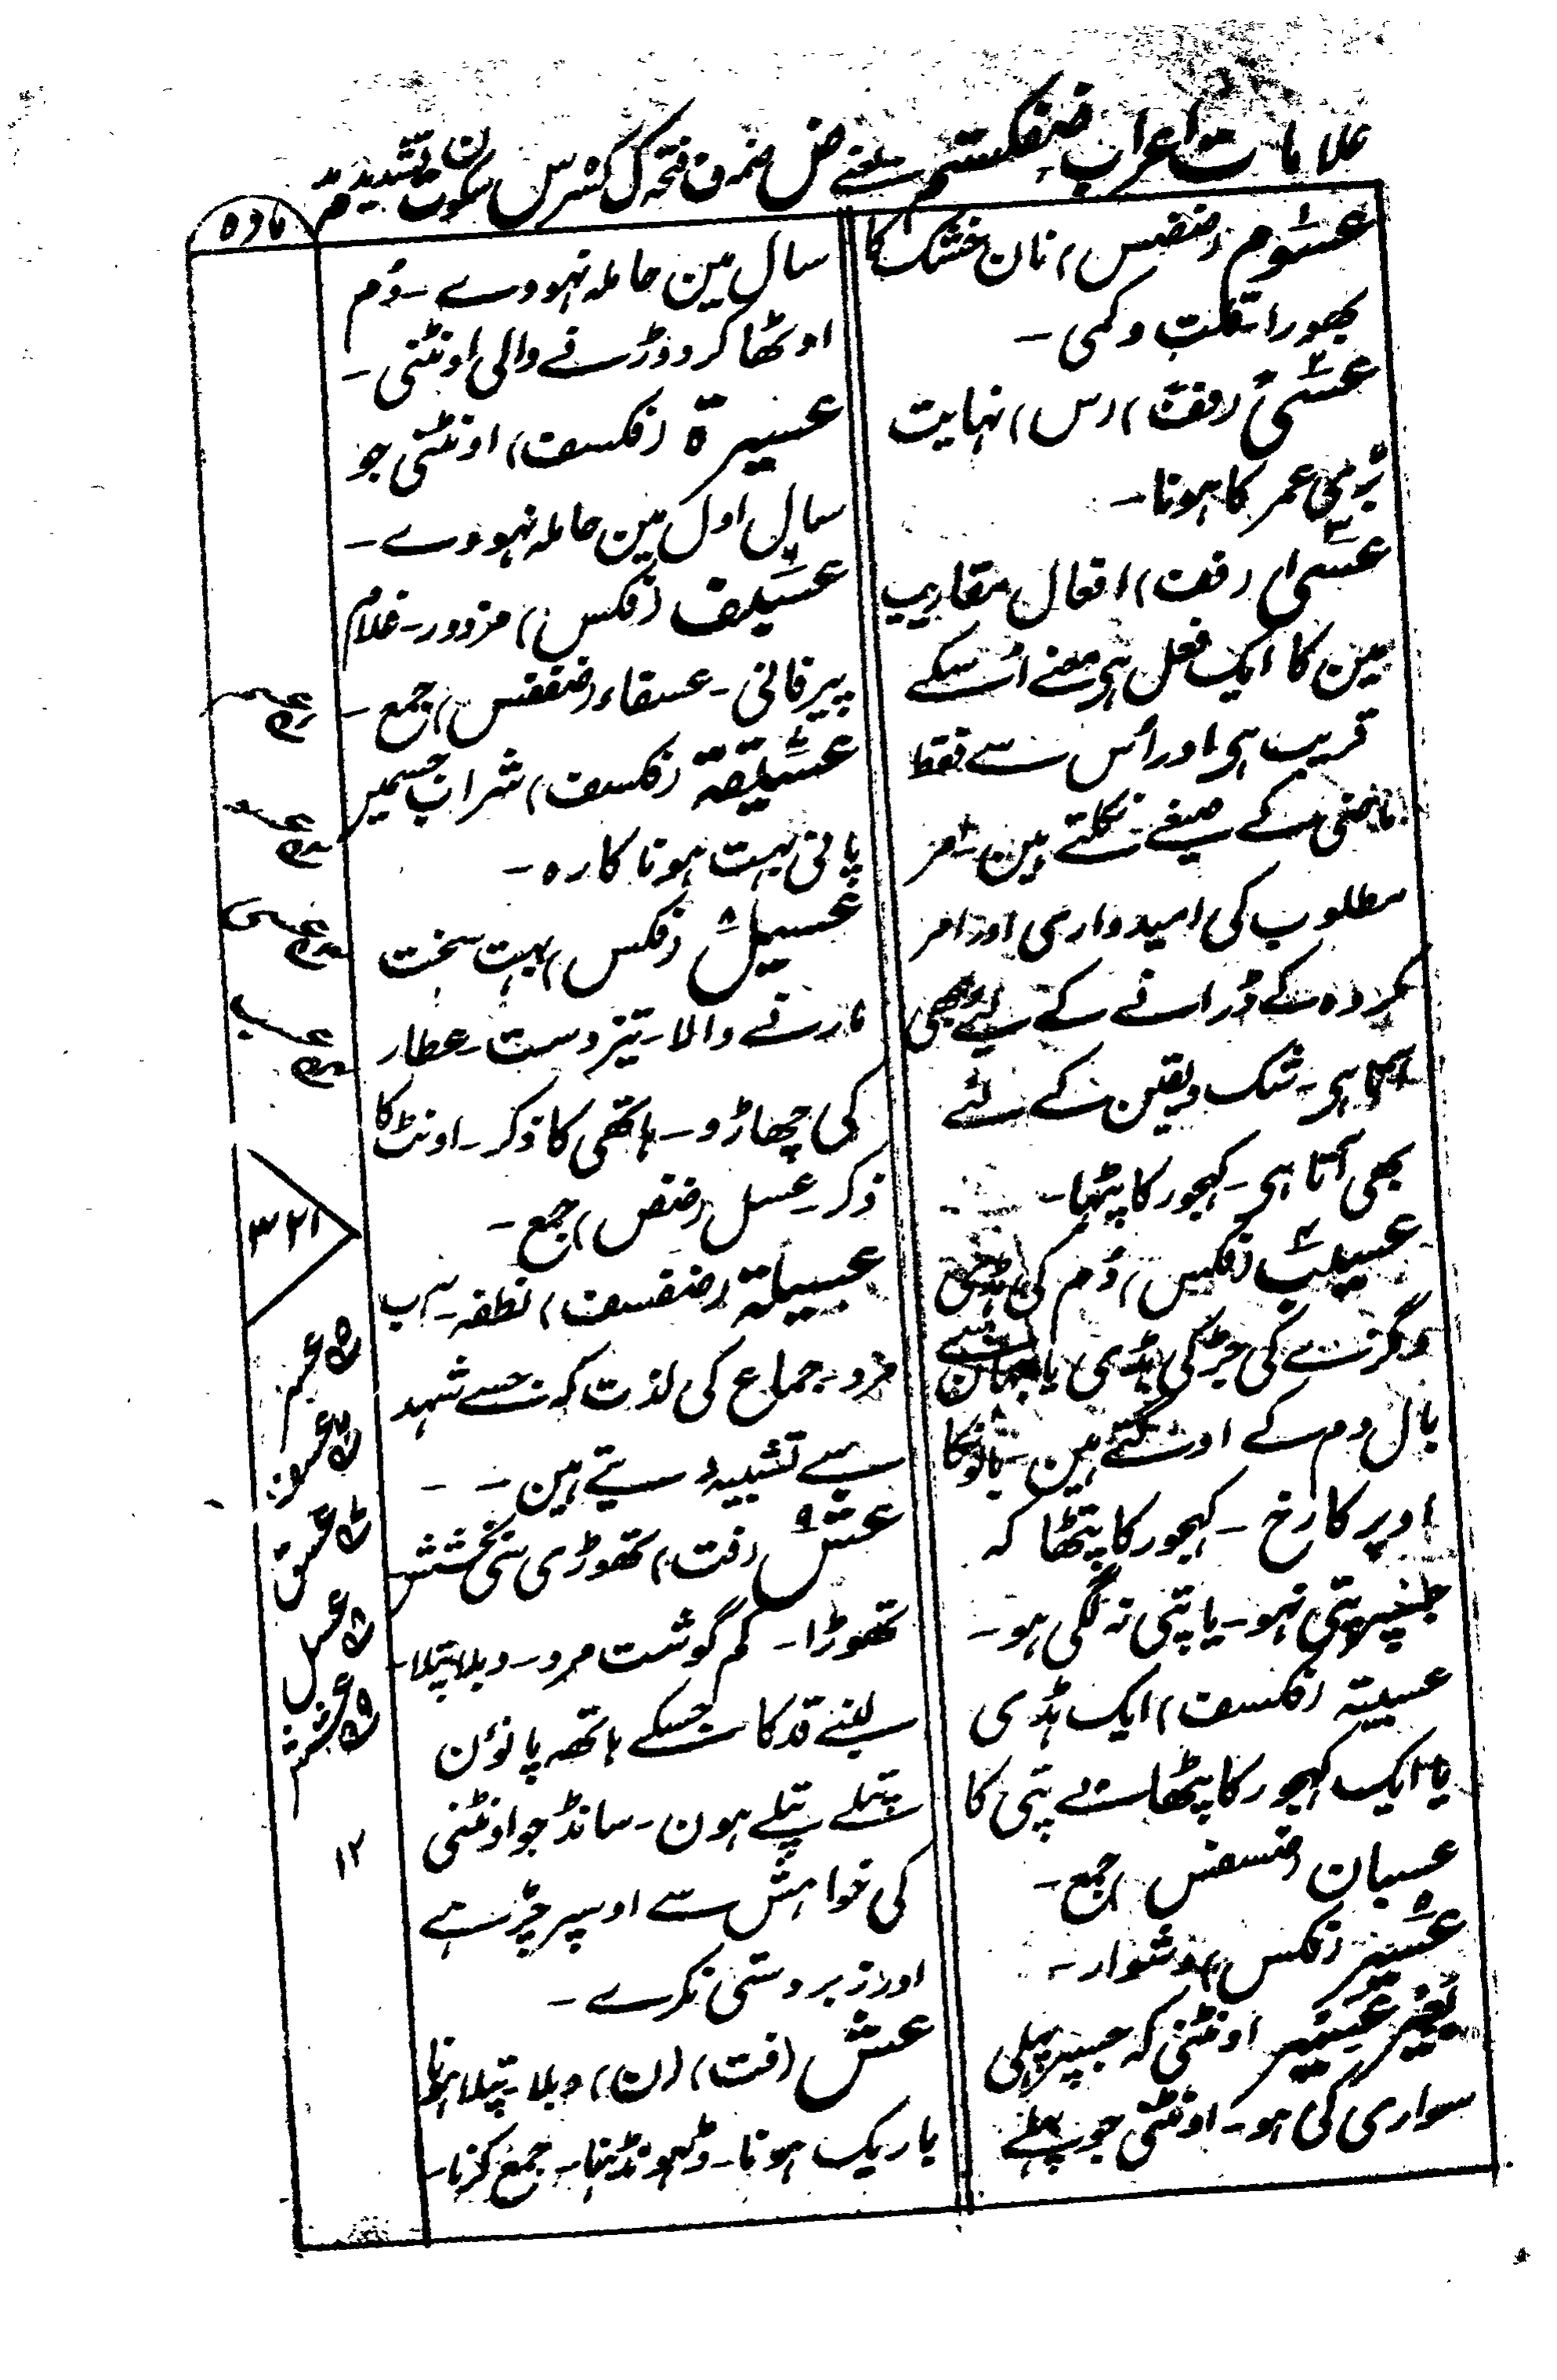 علامات اعراب ضفکستم یعنے ض ضمہ ف فتحہ ک کسر س سکون ت تشدید م مد
مادہ
عسوم (ضفس) نان خشک کا
بھورا۔ قلت و کمی۔
عسیٰ (فف) (س) نہایت
بڑی عمر کا ہونا۔
عسیٰ (فف) افعال مقاربہ
مین کا ایک فعل ہی معنے اُسکے
قریب ہی اور اُس سے فقط
ماضی کے صیغے نکلتے ہین۔ امر
مطلوب کی امیدواری اور امر
مکروہ کے ڈرانے کے لئے بھی
آتا ہی۔ شک و یقین کے لئے
بھی آتا ہی۔ کہجور کا پٹھا۔
عسیب (فکس) دُم کی ہڈی
بال دم کے اوگتے ہین۔ پانوکا
اوپر کا رخ۔ کہجور کا پتٹھا کہ
جسپر پتی نہو۔ یا پتی نہ لگی ہو۔
عسیبہ (فکسف) ایک ہڈی
یا ایک کہجور کا پٹھا بے پتی کا
عسبان (ضسفس) جمع۔
عسیر (فکس) دشوار۔
عسیر اونٹنی کہ جسپر پہلی
سواری کی ہو۔ اونٹنی جو پہلے
سال مین حاملہ نہووے۔ دُم
اوٹھا کر دوڑنے والی اونٹنی۔
عسیرۃ (فکسف) اونٹنی جو
سال اول مین حاملہ نہووے۔
عسیف (فکس) مزدور۔ غلام
پیرفانی۔ عسفاء (ضففس) جمع۔
عسیقۃ (فکسف) شراب جسمین
پانی بہت ہو ناکارہ۔
عسیل (فکس) بہت سخت
مارنے والا۔ تیزدست۔ عطار
کی جھاڑو۔ ہاتھی کا ذکر۔ اونٹ کا
ذکر۔ عسل (ضض) جمع۔
عسیلۃ (ضفسف) نطفہ۔ آب
مرد۔ جماع کی لذت کہ جسے شہد
سے تشبیہ دیتے ہین۔
عش (فت) تھوڑی سی بخشش
تھوڑا۔ کم گوشت مرد۔ دبلا پتلا۔
لنبے قد کا جسکے ہاتھہ پانؤن
پتلے پتلے ہون۔ سانڈ جو اونٹنی
کی خواہش سے اوسپر چڑہے
اور زبردستی نکرے۔
عش (فت) (ن) دبلا۔ پتلا ہونا
باریک ہونا۔ ڈہونڈہنا۔ جمع کرنا۔
۳۲۱
عسر
عسف
عسق
عسل
عشش
۱۲